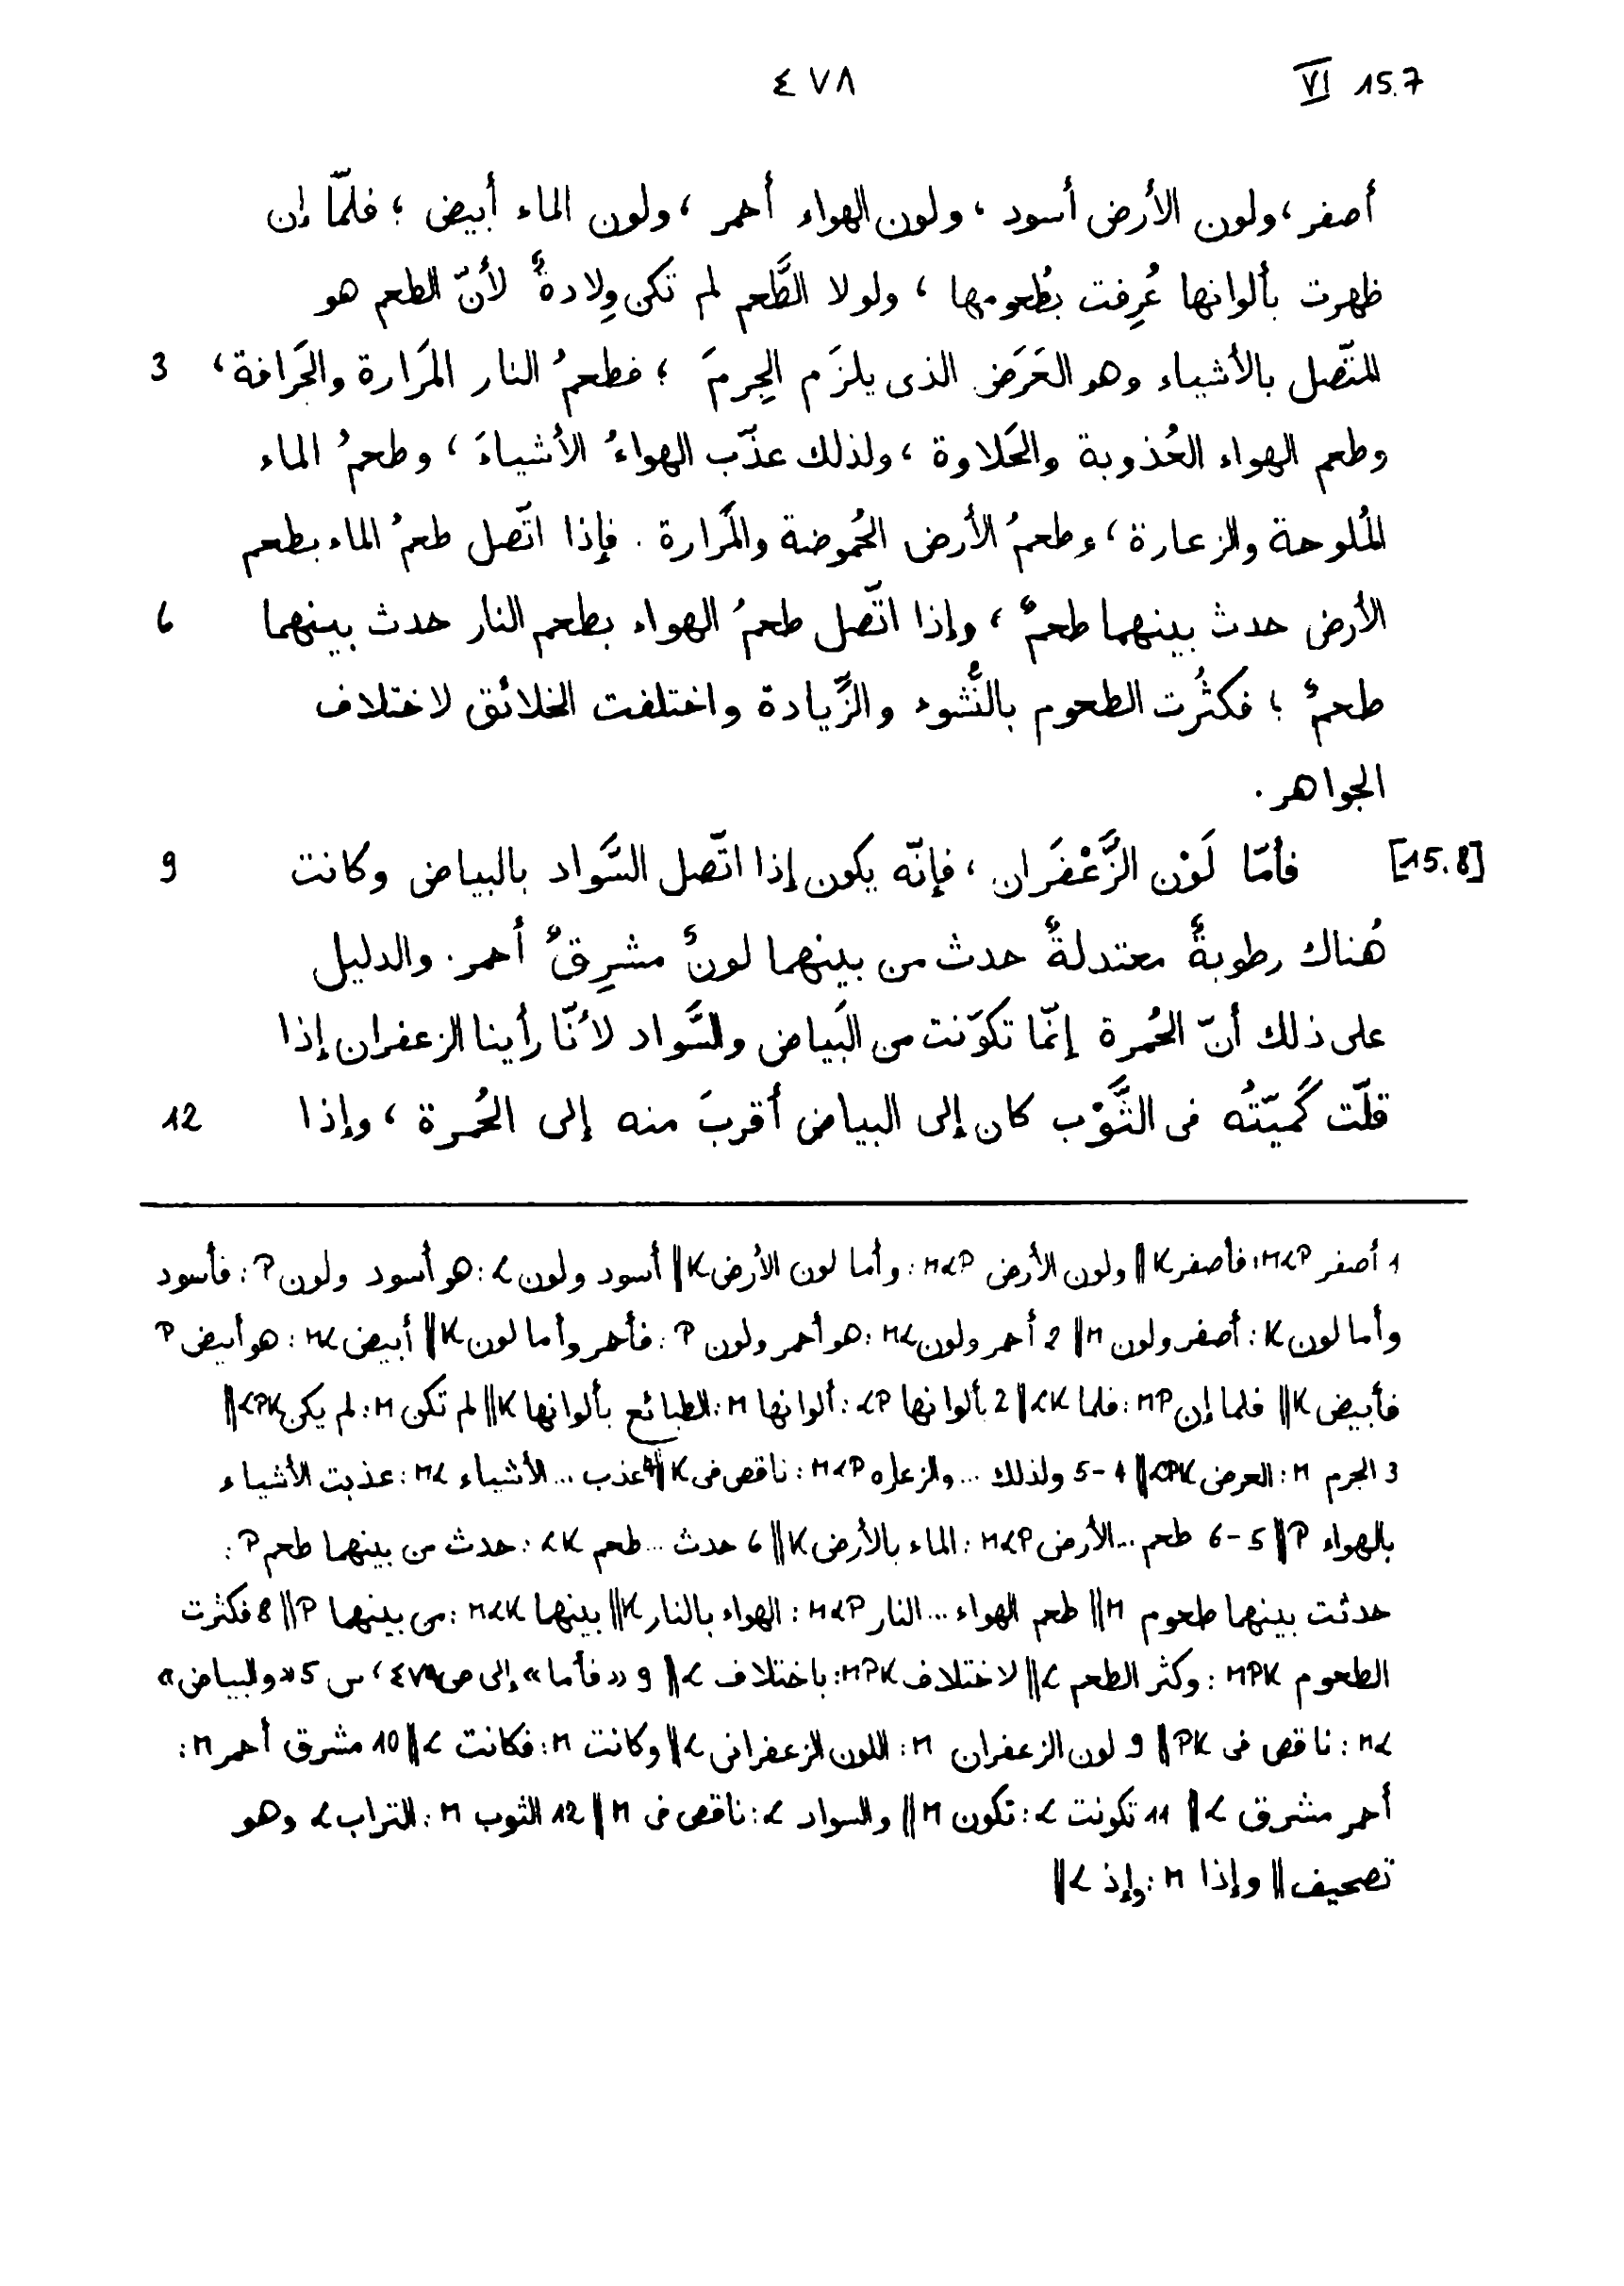 ٤٧٨ VI 15.7
أصفر، ولون الأرض أسود، ولون الهواء أحمر، ولون الماء أبيض؛ فلمّا إن
ظهرت بألوانها عُرِفت بطُعومها، ولولا الطَّعم لم تكن وِلادةٌ لأنّ الطعم هو
المتّصل بالأشياء وهو العَرَض الذى يلزَم الجِرمَ؛ فطعمُ النار المَرارة والحَرافة، 3
وطعم الهواء العُذوبة والحَلاوة، ولذلك عذّب الهواءُ الأشياءَ، وطعمُ الماء
المُلوحة والزعارة، وطعمُ الأرض الحُموضة والمَرارة. فإذا اتّصل طعمُ الماء بطعم
الأرض حدث بينهما طعمٌ، وإذا اتّصل طعمُ الهواء بطعم النار حدث بينهما 6
طعمٌ؛ فكثُرت الطعوم بالنُّشوء والزِّيادة واختلفت الخلائق لاختلاف
الجواهر.
[15.8] فأمّا لَوْن الزَّعْفَران، فإنّه يكون إذا اتّصل السَّواد بالبياض وكانت 9
هُناك رطوبةٌ معتدلةٌ حدث من بينهما لونٌ مشرِقٌ أحمر. والدليل
على ذلك أنّ الحُمرة إنّما تكوّنت من البَياض والسَّواد لأنّا رأينا الزعفران إذا
قلّت كَمّيّتُه فى الثَّوْب كان إلى البياض أقربَ منه إلى الحُمرة، وإذا 12
1 أصفر MLP: فأصفر K || ولون الأرض MLP: وأما لون الأرض K || أسود ولون L: هو أسود ولون P: فأسود
وأما لون K: أصفر ولون M || 2 أحمر ولون ML: هو أحمر ولون P: فأحمر وأما لون K || أبيض ML: هو أبيض P
فأبيض K || فلما إن MP: فلما LK || 2 بألوانها LP: ألوانها M: الطبائع بألوانها K || لم تكن M: لم يكن LPK ||
3 الجرم M: العرض LPK || 4-5 ولذلك ... والزعاره MLP: ناقص فى K || 4 عذب ... الأشياء ML: عذبت الأشياء
بالهواء P || 5-6 طعم ... الأرض MLP: الماء بالأرض K || 6 حدث ... طعم LK: حدث من بينهما طعم P:
حدثت بينهما طعوم M || طعم الهواء ... النار MLP: الهواء بالنار K || بينهما MLK: من بينهما P || 8 فكثرت
الطعوم MPK: وكثر الطعم L || لاختلاف MPK: باختلاف L || 9 «فأما» إلى ص ٤٧٩، س 5 «والبياض»
ML: ناقص فى PK || 9 لون الزعفران M: اللون الزعفرانى L || وكانت M: فكانت L || 10 مشرق أحمر M:
أحمر مشرق L || 11 تكونت L: تكون M || والسواد L: ناقص فى M || 12 الثوب M: التراب L وهو
تصحيف || وإذا M: وإذ L ||